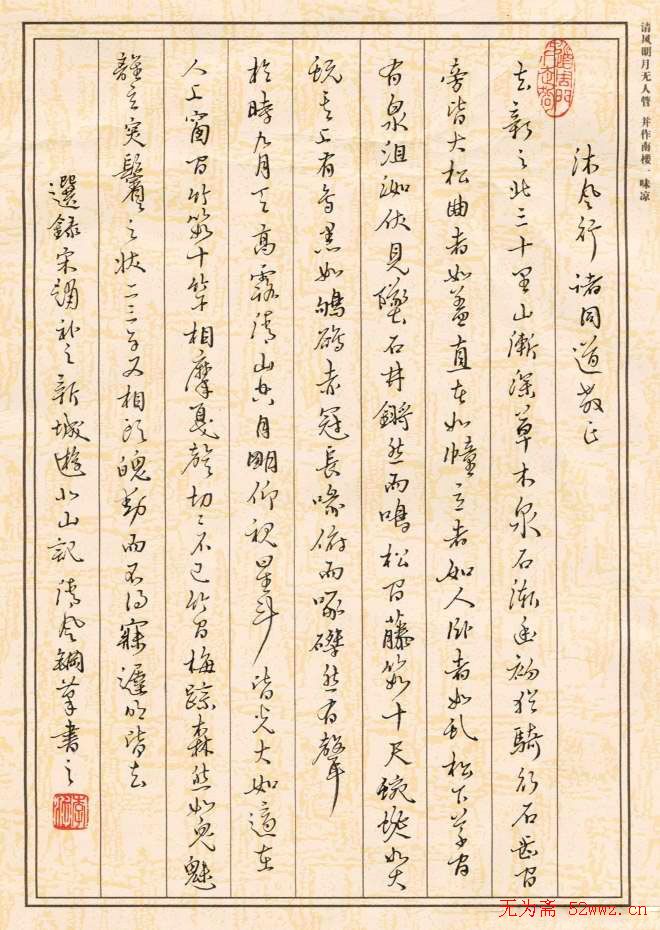 清风明月无人管 并作南楼一味凉
沐风行诸同道教正
去新之北三十里山漸深草木泉石漸幽初猶騎行石齒间
旁皆大松曲者如盖直者如幢立者如人卧者如虬松下草间
有泉沮洳伏見墮石井鏘然而鳴松间藤數十尺蜿蜒如大
蚖其上有鸟黑如鴝鵒赤冠長喙俯而啄磔然有聲
於時九月天高露清山空月明仰视星斗皆光大如適在
人上窗间竹數十竿相摩戛聲切〻不已竹间梅踪森然如鬼魅
離立突鬢之状二三子又相顾魄動而不得寐遲明皆去
選録宋晁补之新城遊北山記 清风鋼筆書之
无为斋 52wwz.cn